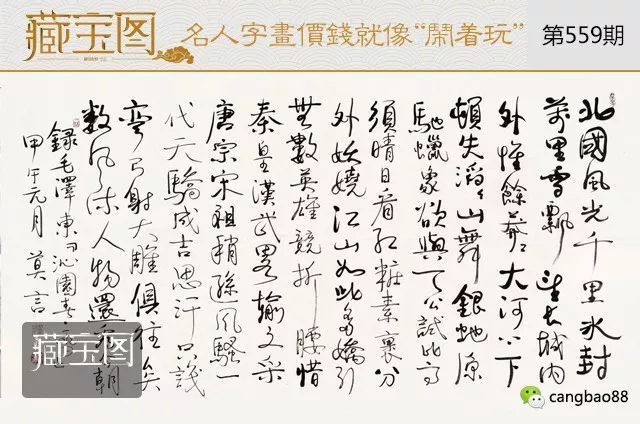 藏宝图
名人字畫價錢就像“鬧着玩”
第559期
北國風光千里冰封
萬里雪飄望長城內
外惟餘莽〻大河上下
頓失滔〻山舞銀蛇原
馳蠟象欲與天公試比高
須晴日看紅粧素裹分
外妖嬈江山如此多嬌引
無數英雄競折腰惜
秦皇漢武畧輸文采
唐宗宋祖稍遜風騷一
代天驕成吉思汗只識
彎弓射大雕俱往矣
數風流人物還看今朝
錄毛澤東詞沁園春
甲午元月 莫言
藏宝图
cangbao88